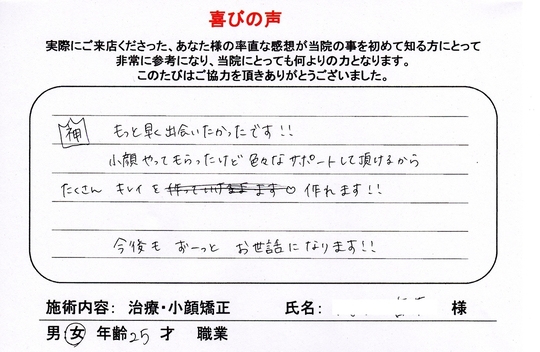 喜びの声
実際にご来店くださった、あなた様の率直な感想が当院の事を初めて知る方にとって
非常に参考になり、当院にとっても何よりの力となります。
このたびはご協力を頂きありがとうございました。
神 もっと早く出会いたかったです!!
小顔やってもらったけど色々なサポートして頂けるから
たくさん キレイを 作れます!!
今後も ずーっと お世話になります!!
施術内容: 治療・小顔矯正 氏名: 様
男・女 年齢25才 職業